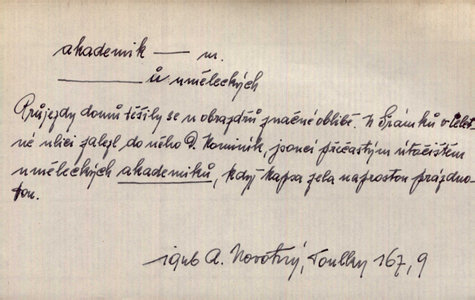 akademik — m.
——— ů uměleckých
Průjezdy domů těšily se u obrazdrů značné oblibě. U Špámků v Celet-
né ulici zalezl do něho D. Kominík, jsoucí přečastým útočištěm
uměleckých akademiků, když kapsa zela naprostou prázdno-
tou.
1946 A. Novotný, Toulky 167, 9